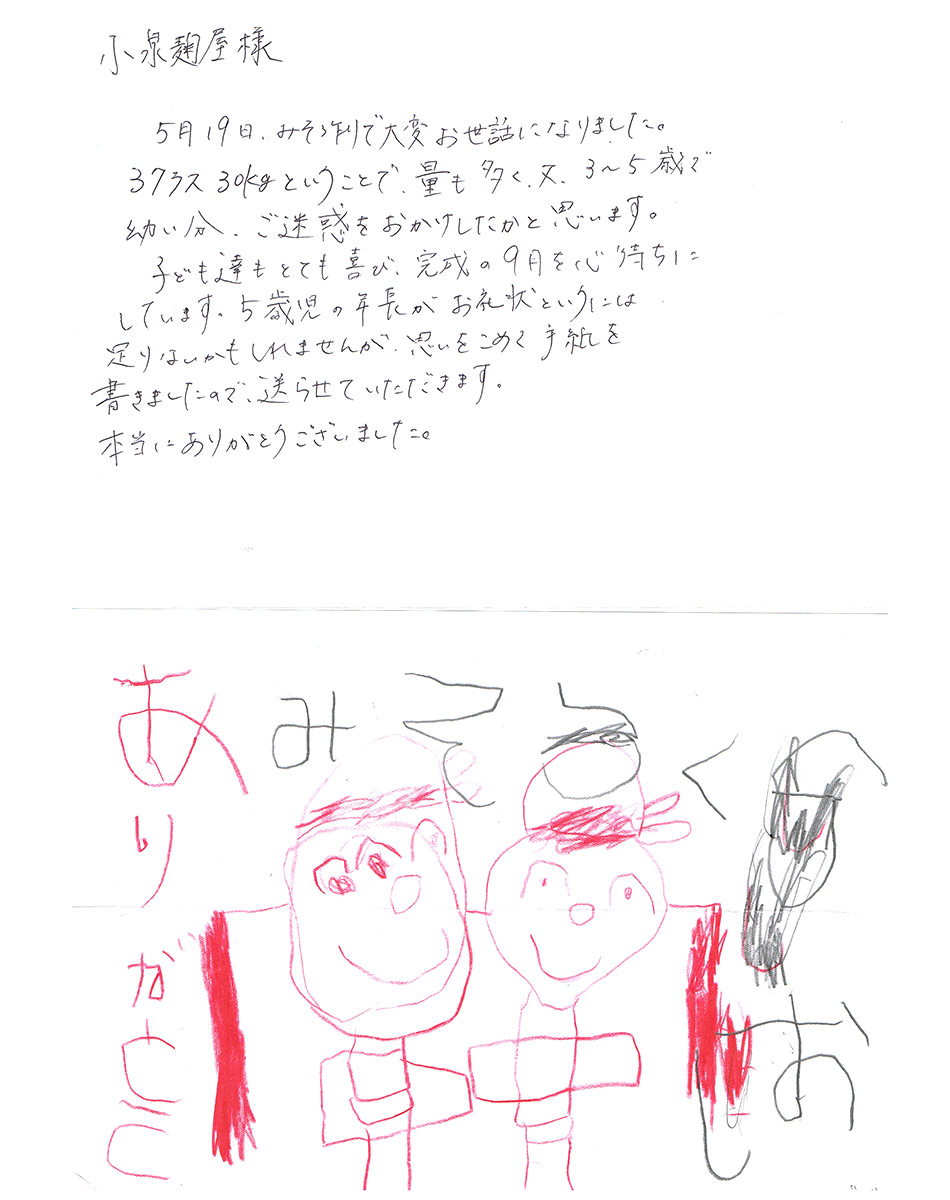 小泉麹屋様
5月19日、みそ作りで大変お世話になりました。
3クラス30kgということで、量も多く、又、3〜5歳で
幼い分、ご迷惑をおかけしたかと思います。
子ども達もとても喜び、完成の9月を心待ちに
しています。5歳児の年長がお礼状というには
足りないかもしれませんが、思いをこめて手紙を
書きましたので、送らせていただきます。
本当にありがとうございました。
みそ
あ
り
が
と